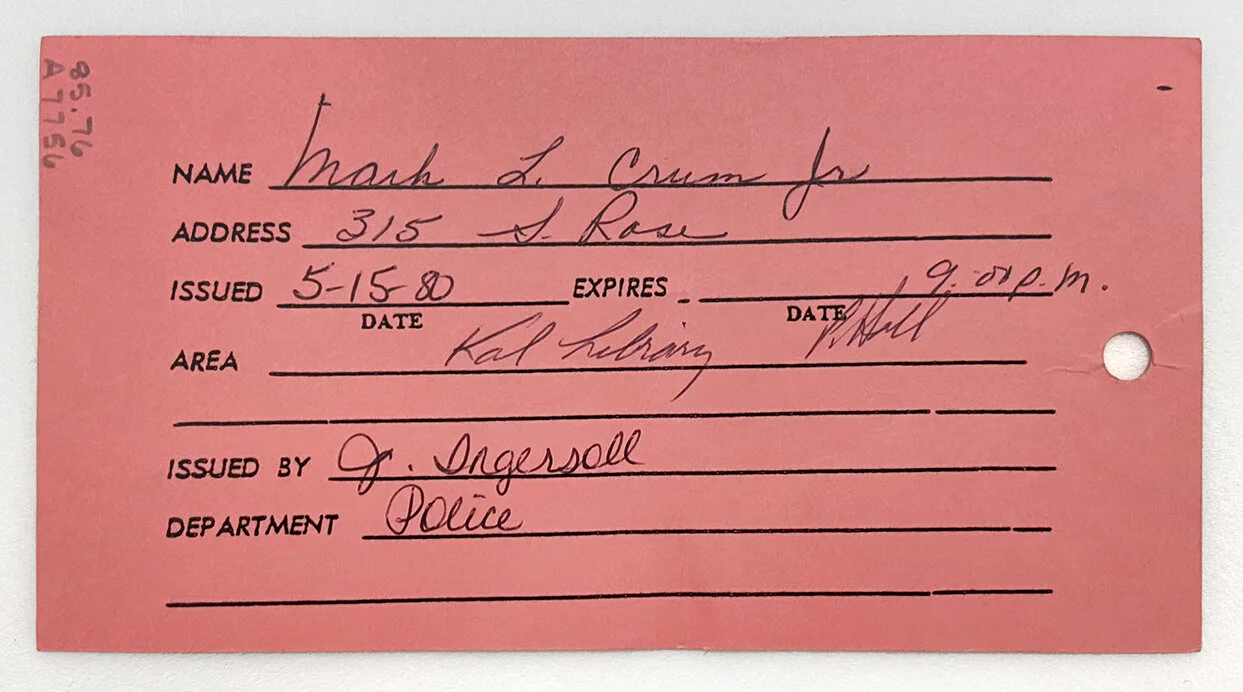 85.76
A7756
NAME Mark L. Crum Jr
ADDRESS 315 S. Rose
ISSUED 5-15-80 EXPIRES 9:00 p.m.
DATE DATE
AREA Kal Library
ISSUED BY J. Ingersoll
DEPARTMENT Police